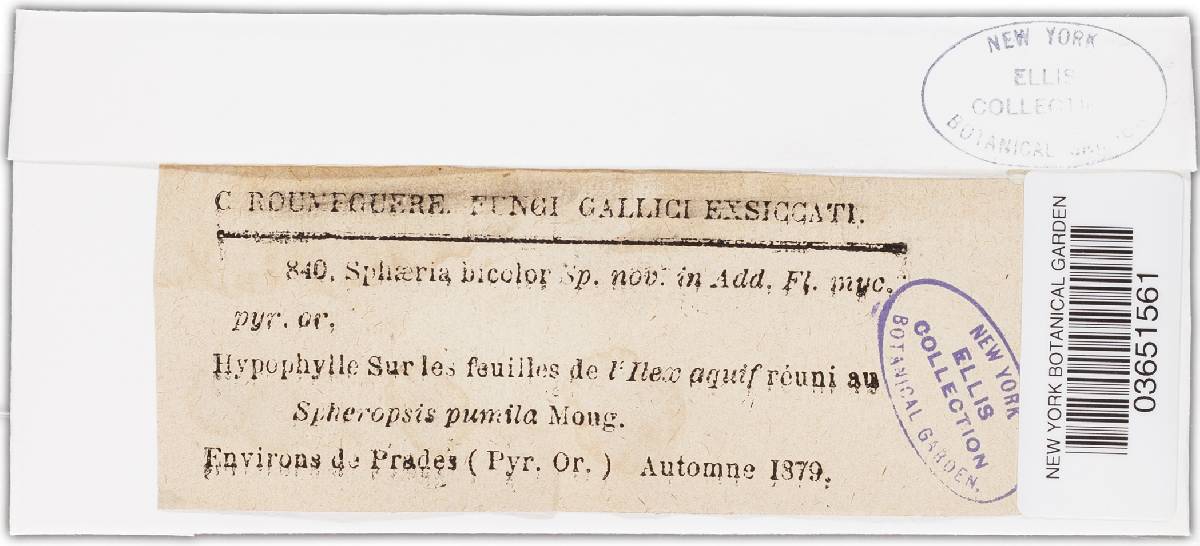 NEW YORK
ELLIS
COLLECTI
BOTANICAL
C. ROUMEGUERE. FUNGI GALLICI EXSICCATI.
840. Sphæria bicolor Sp. nov. in Add. Fl. myc.
pyr. or.
Hypophylle Sur les feuilles de l'Ilex aquif réuni au
Spheropsis pumila Moug.
Environs de Prades ( Pyr. Or. ) Automne 1879.
NEW YORK
ELLIS
COLLECTION
BOTANICAL GARDEN.
NEW YORK BOTANICAL GARDEN
03651561